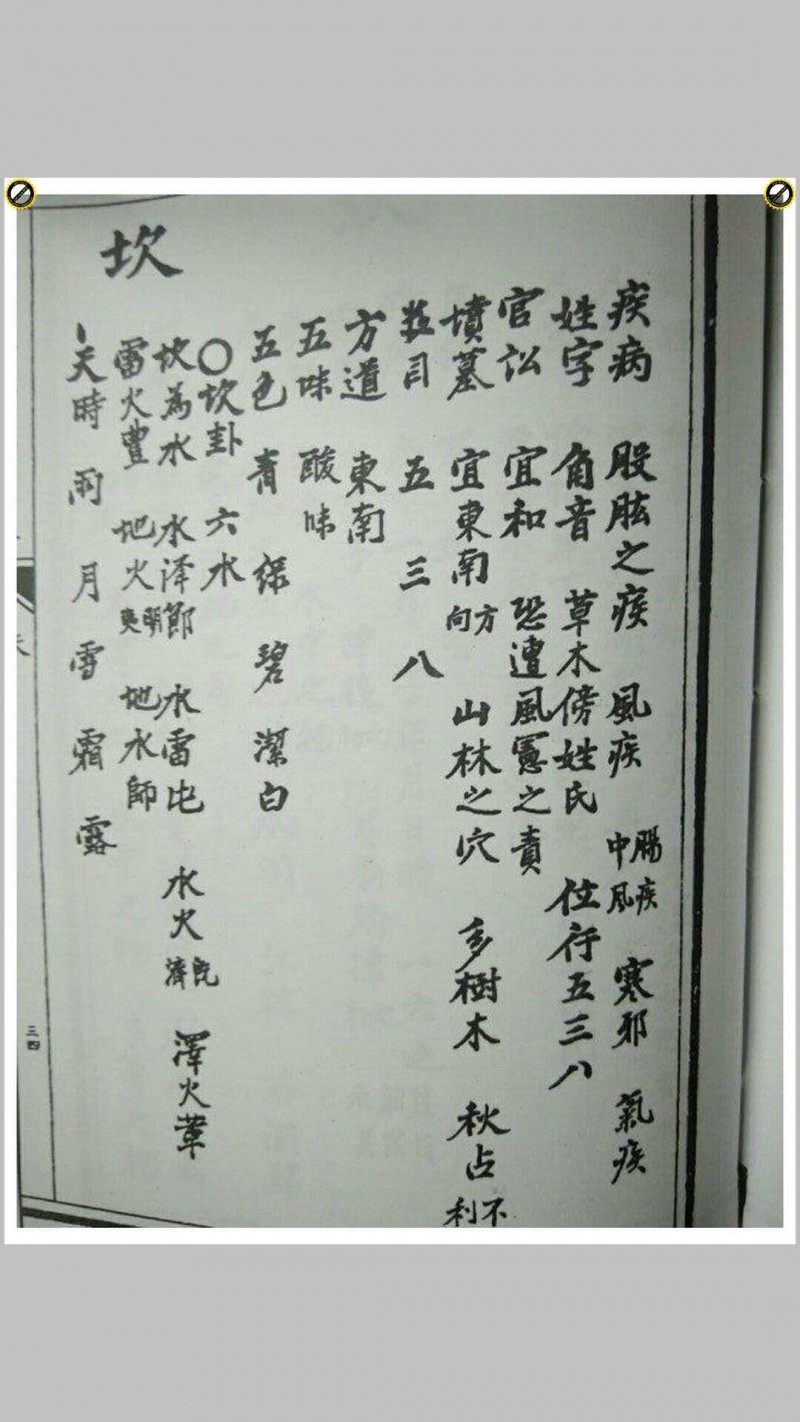 疾病 股肱之疾 風疾 腸疾中風 寒邪 氣疾
姓字 角音 草木傍姓氏 位行五三八
官訟 宜和 恐遭風憲之責
墳墓 宜東南方向 山林之穴 多樹木 秋占不利
五 三 八
方道 東南
五味 酸味
五色 青 綠 碧 潔白
坎
〇坎卦 六水
坎為水 水泽節 水雷屯 水火既濟 澤火革
雷火豐 地火明夷 地水師
天時 雨 月 雪 霜 露
三四